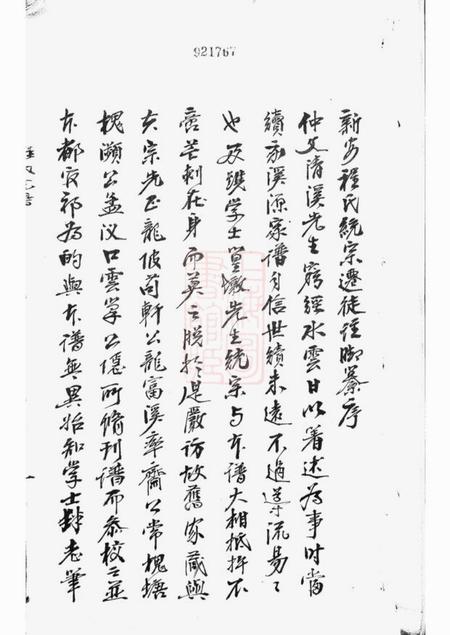 921767
新安程氏統宗遷徙註脚纂序
仲父清溪先生窮經水雲日以著述爲事時當
續永溪源家譜自信世績未遠不過導流易々
也及覩學士篁墩先生統宗与本譜大相抵牾不
啻芒刺在身而莫之脱於是嚴访故舊家藏與
大宗先正龍坡尚軒公龍富溪率齋公常槐塘
槐濒公孟汊口雲掌公隱所脩刊譜而叅校之並
本都容祁为的與本譜無異始知学士肆老筆